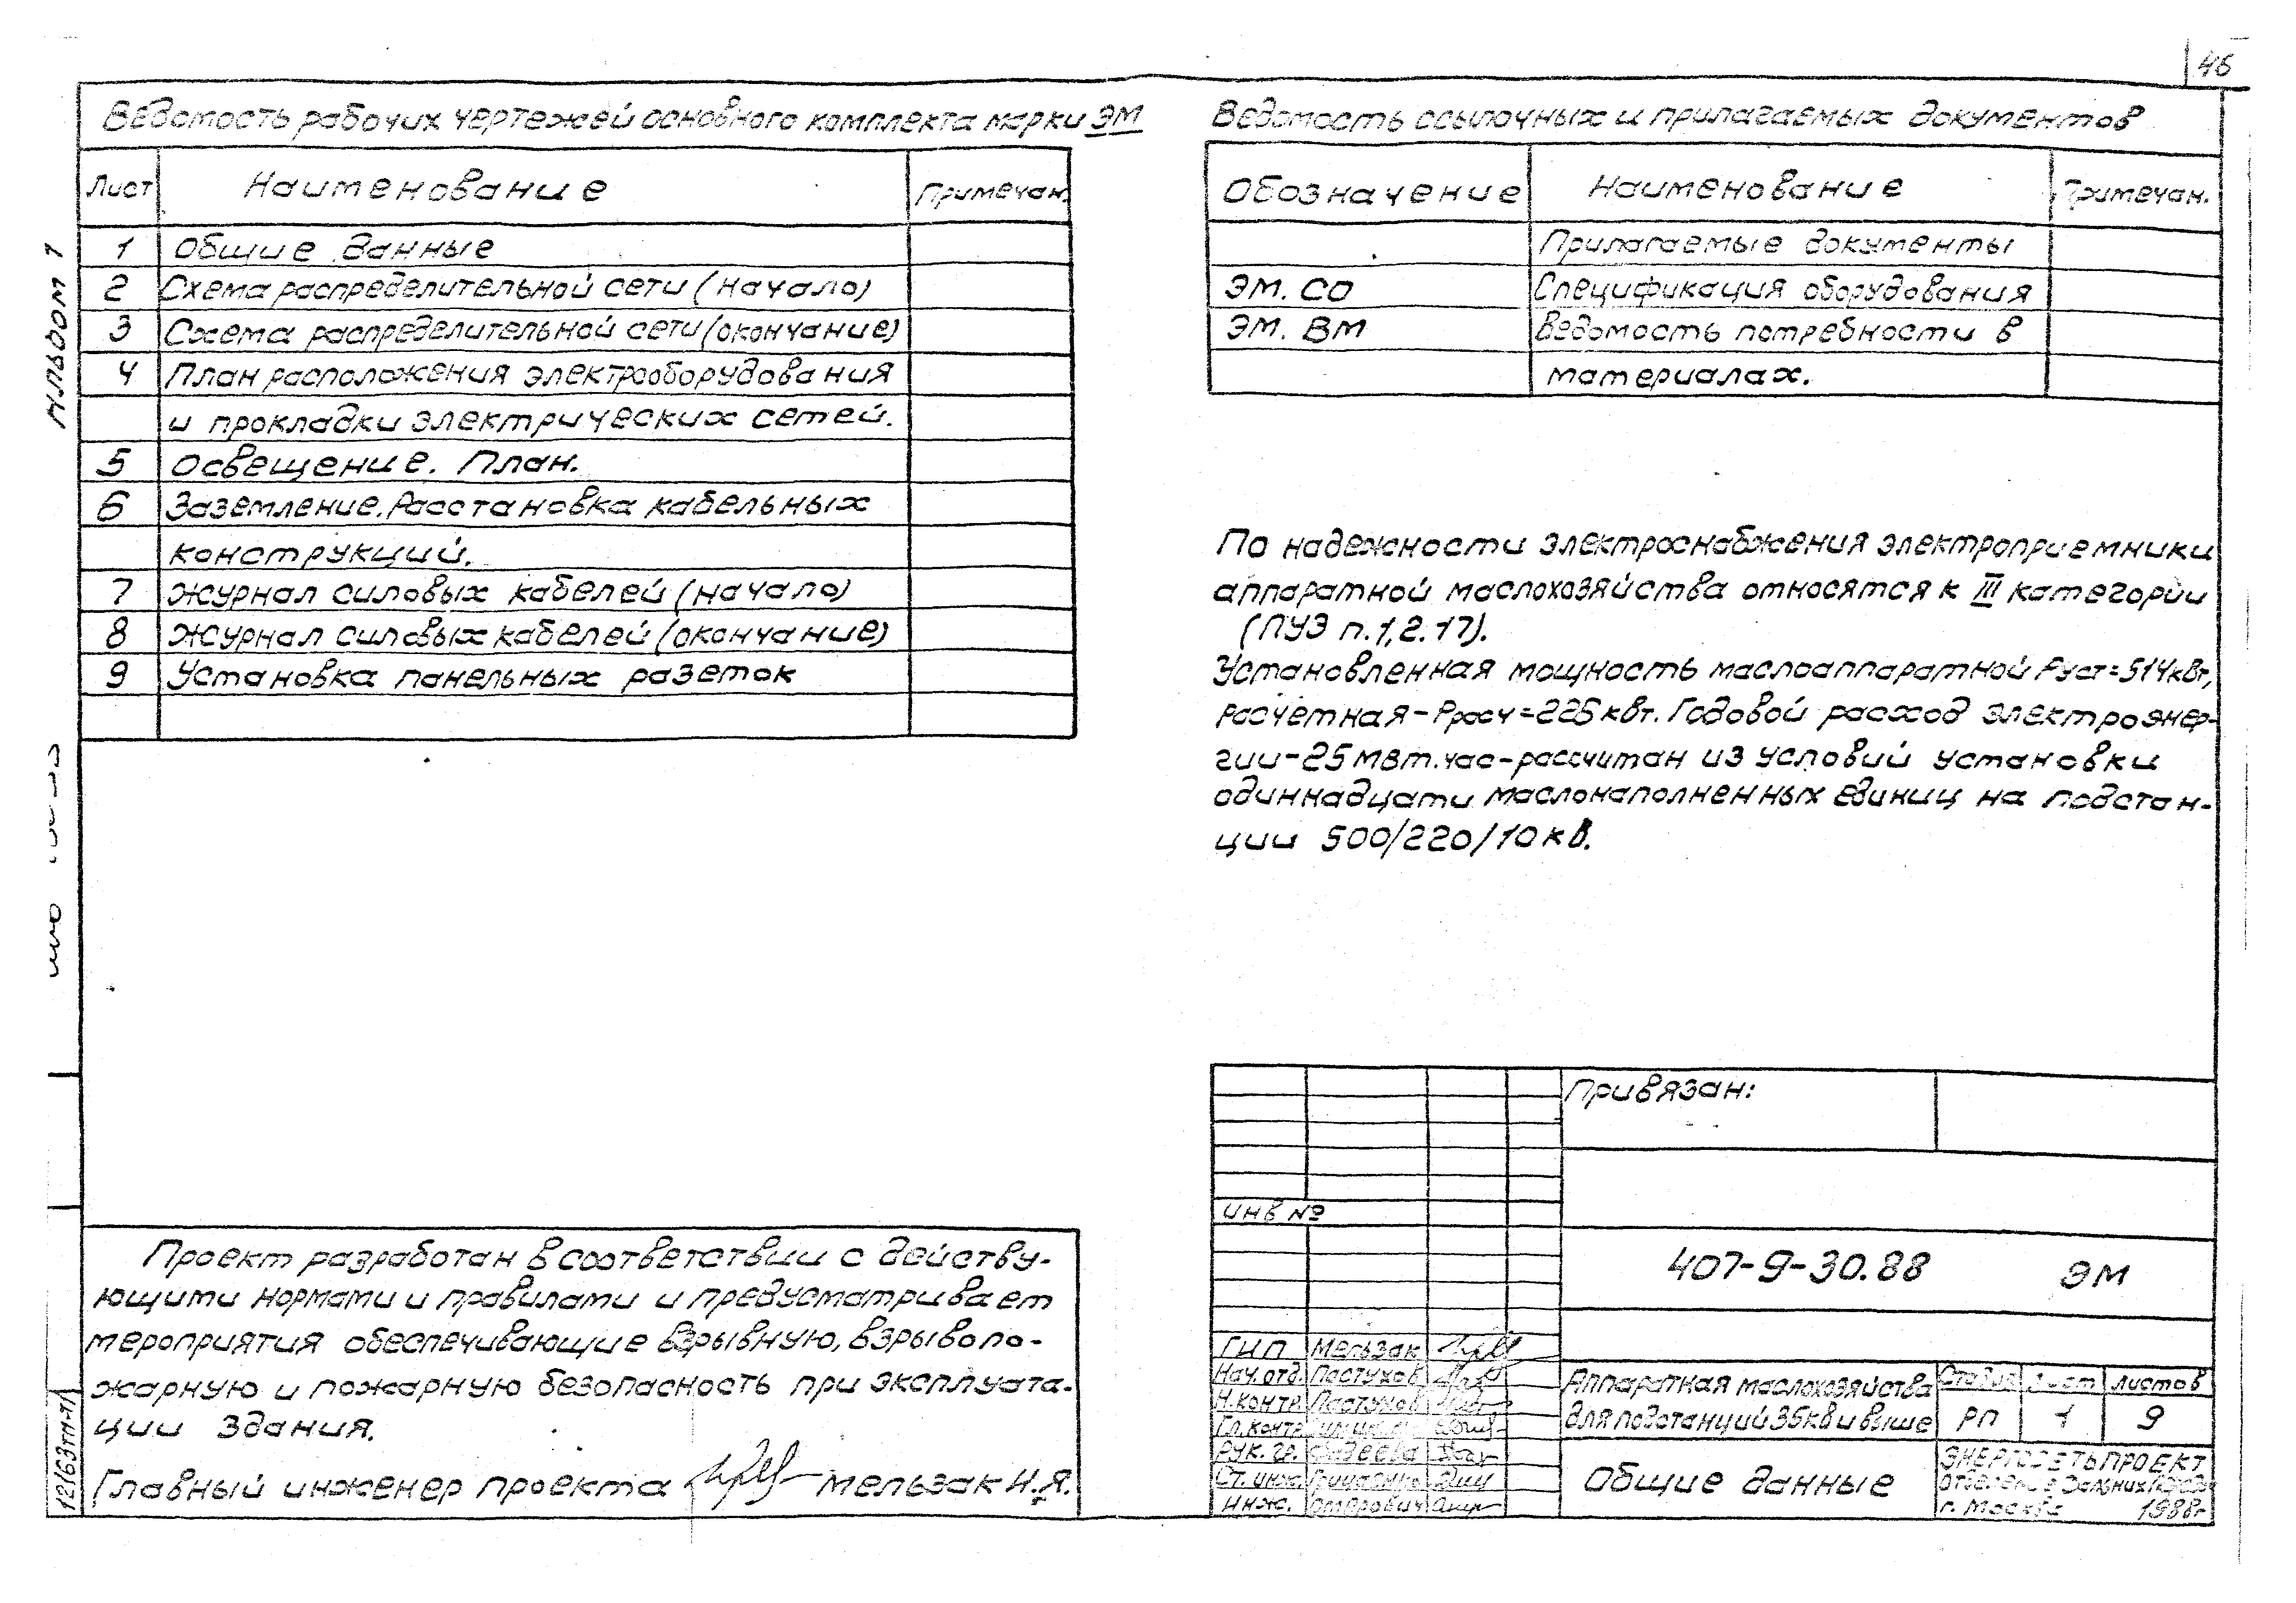 46
Ведомость рабочих чертежей основного комплекта марки ЭМ
Лист Наименование Примечан.
1 Общие данные
2 Схема распределительной сети (начало)
3 Схема распределительной сети (окончание)
4 План расположения электрооборудования
и прокладки электрических сетей.
5 Освещение. План.
6 Заземление. Расстановка кабельных
конструкций.
7 Журнал силовых кабелей (начало)
8 Журнал силовых кабелей (окончание)
9 Установка панельных разеток
Альбом 1
Ведомость ссылочных и прилагаемых документов
Обозначение Наименование Примечан.
Прилагаемые документы
ЭМ. СО Спецификация оборудования
ЭМ. ВМ Ведомость потребности в
материалах.
По надежности электроснабжения электроприемники
аппаратной маслохозяйства относятся к III категории
(ПУЭ п.1,2.17).
Установленная мощность маслоаппаратной Руст=514кВт,
расчетная-Ррасч=225кВт. Годовой расход электроэнер-
гии-25мВт.час-рассчитан из условий установки
одиннадцати маслонаполненных единиц на подстан-
ции 500/220/10кВ.
Проект разработан в соответствии с действу-
ющими нормами и правилами и предусматривает
мероприятия обеспечивающие взрывную, взрывопо-
жарную и пожарную безопасность при эксплуата-
ции здания.
Главный инженер проекта Мельзак И.Я.
12163тм-т1
Привязан:
инв №
407-9-30.88 ЭМ
ГИП Мельзак
Нач.отд. Пастухов
Н.контр. Пастухов
Гл.контр.
Рук. гр. Фадеева
Ст.инж.
Инж.
Аппаратная маслохозяйства
для подстанций 35кВ и выше
Стадия Лист Листов
РП 1 9
Общие данные
ЭНЕРГОСЕТЬПРОЕКТ
Отделение Дальних передач
г. Москва 1988г